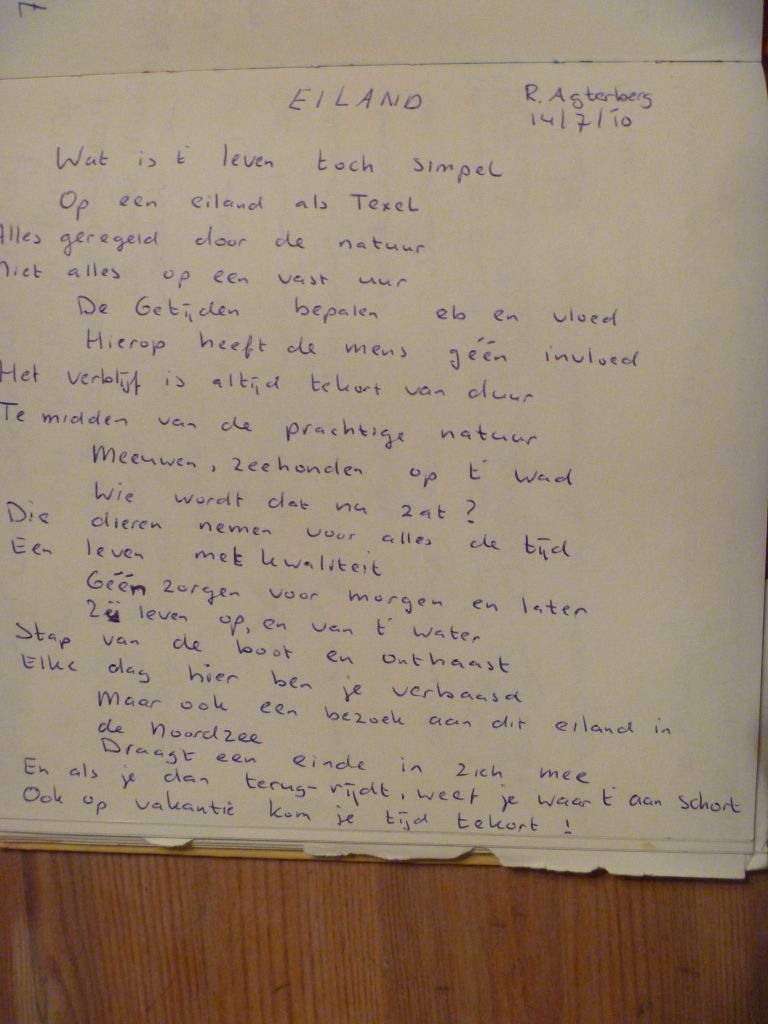 EILAND R. Agterberg
14/7/10
Wat is t' leven toch simpel
Op een eiland als Texel
Alles geregeld door de natuur
Niet alles op een vast uur
De Getijden bepalen eb en vloed
Hierop heeft de mens géén invloed
Het verblijf is altijd tekort van duur
Te midden van de prachtige natuur
Meeuwen, zeehonden op t' wad
Wie wordt dat nu zat?
Die dieren nemen voor alles de tijd
Een leven met kwaliteit
Géén zorgen voor morgen en later
Zij leven op, en van t' water
Stap van de boot en onthaast
Elke dag hier ben je verbaasd
Maar ook een bezoek aan dit eiland in
de Noordzee
Draagt een einde in zich mee
En als je dan terug-rijdt, weet je waar t' aan schort
Ook op vakantie kom je tijd tekort!